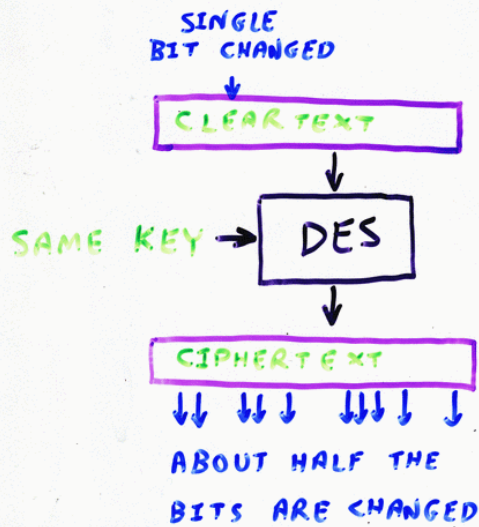 SINGLE
BIT CHANGED
CLEARTEXT
SAME KEY
DES
CIPHERTEXT
ABOUT HALF THE
BITS ARE CHANGED